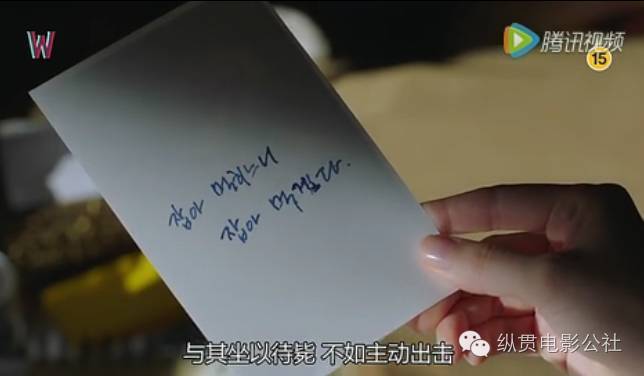 W
腾讯视频
15
잡아 먹히느니
잡아 먹겠다.
与其坐以待毙 不如主动出击
纵贯电影公社